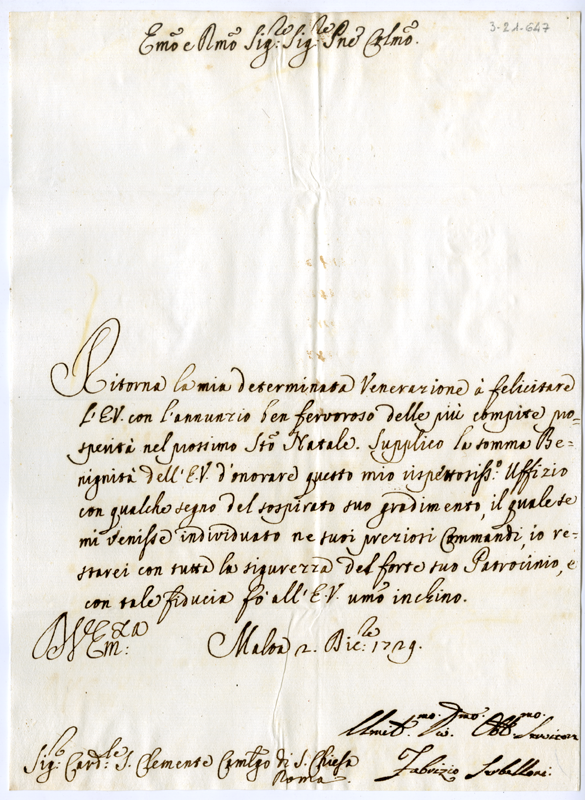 3-21-647
Emo e Rmo Sig:re Sig:re Pne Colmo.
Ritorna la mia determinata Venerazione à felicitare
l'E.V. con l'annunzio ben fervoroso delle più compite pro=
sperità nel prossimo Sto Natale. Supplico la somma Be=
nignità dell'E.V. d'onorare questo mio rispettosiss:o Uffizio
con qualche segno del sospirato suo gradimento, il quale se
mi venisse individuato ne suoi preziosi Commandi, io re=
starei con tutta la sigurezza del forte suo Patrocinio, e
con tale fiducia fò all'E.V. umo inchino.
Em:
Malta 2. Dic:re 1729.
Umil:mo Dmo. Obb:mo.
Sig:r Card:le S. Clemente Camlgo di S. Chiesa
Roma
Fabrizio Serbelloni.